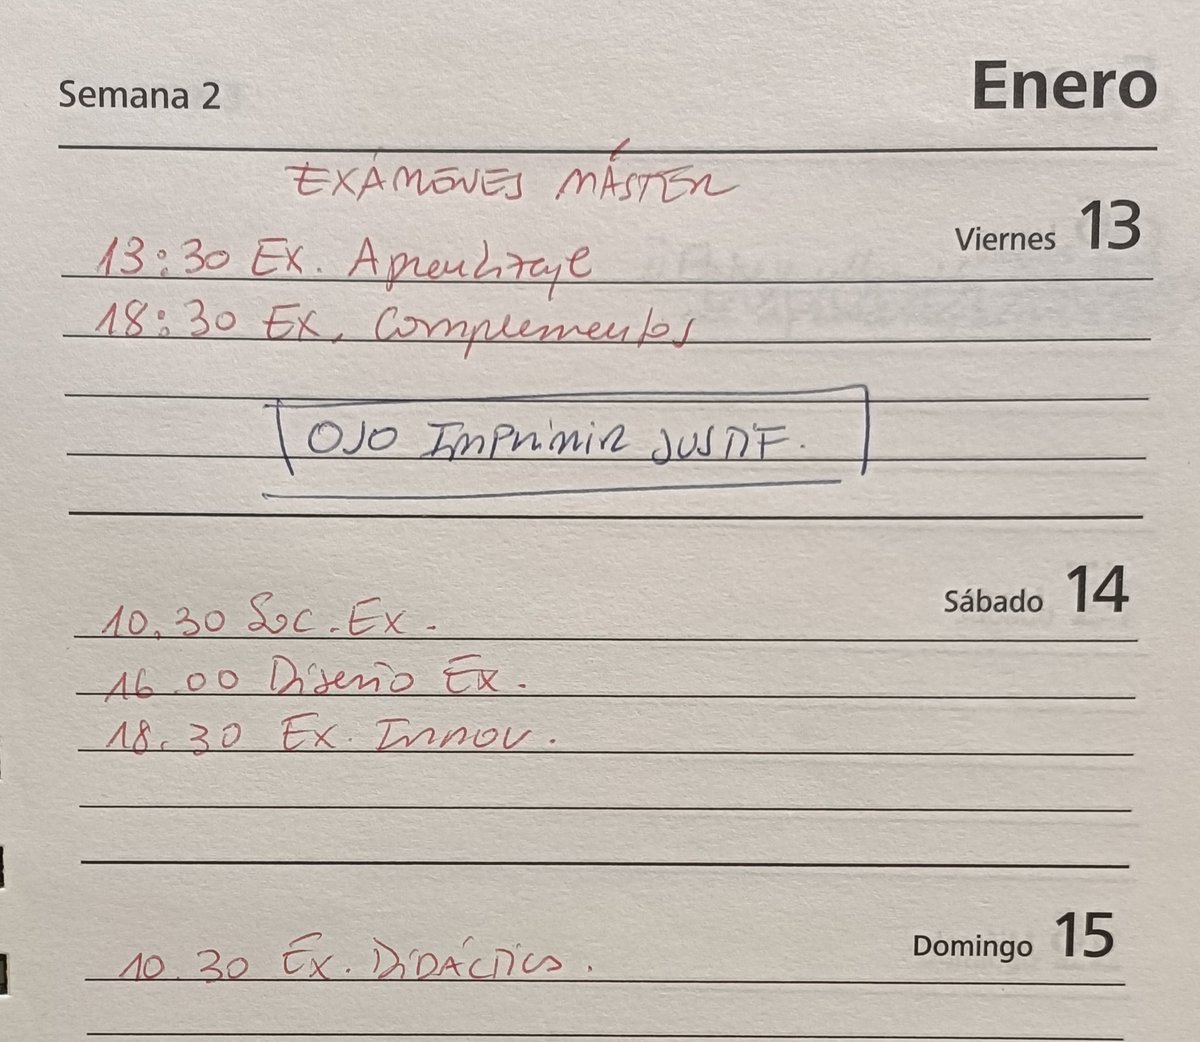 Semana 2 Enero
EXÁMENES MÁSTER
Viernes 13
13:30 Ex. Aprendizaje
18:30 Ex. Complementos
OJO Imprimir JUSTIF.
Sábado 14
10.30 Soc. Ex.
16.00 Diseño Ex.
18.30 Ex. Innov.
Domingo 15
10.30 Ex. DIDÁCTICA.